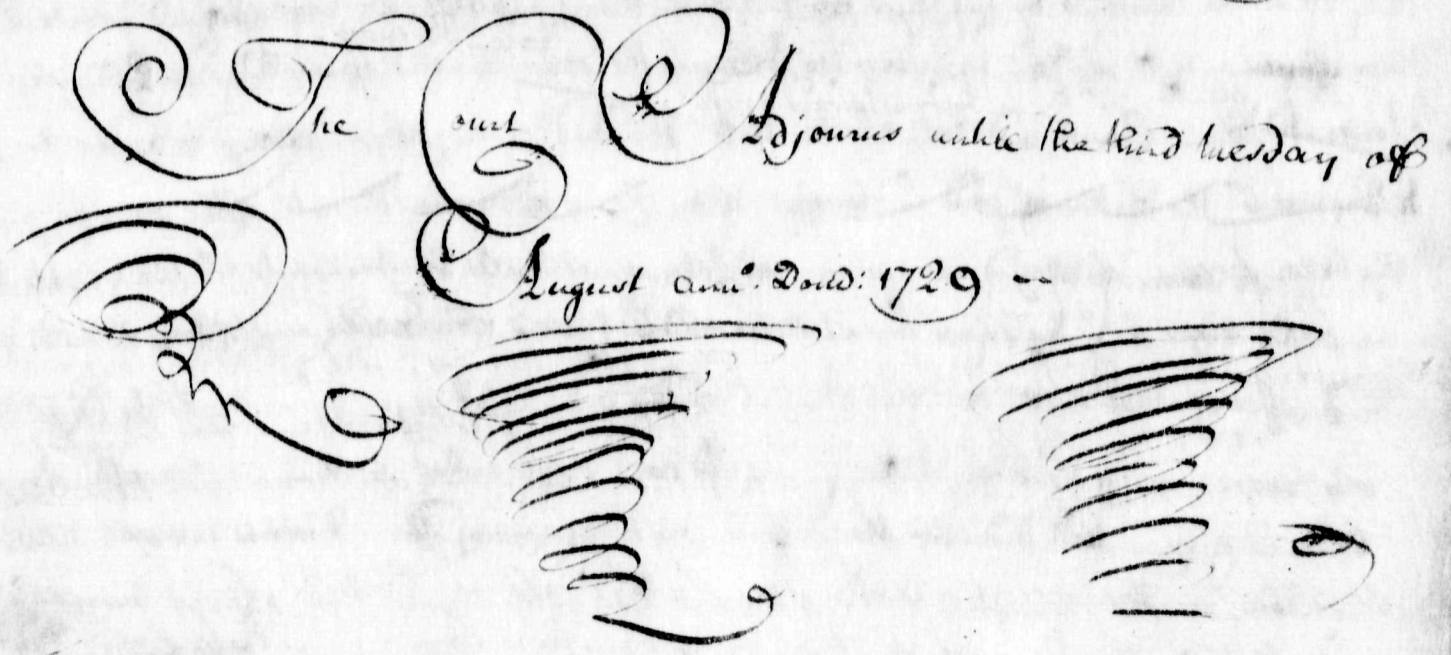 The Court Adjourns untill the third tuesday of
August Anno: Domi: 1729